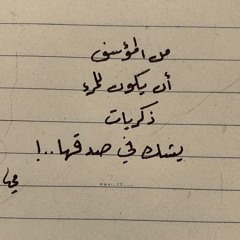 من المؤسف
أن يكون للمرء
ذكريات
يشك في صدقها..!